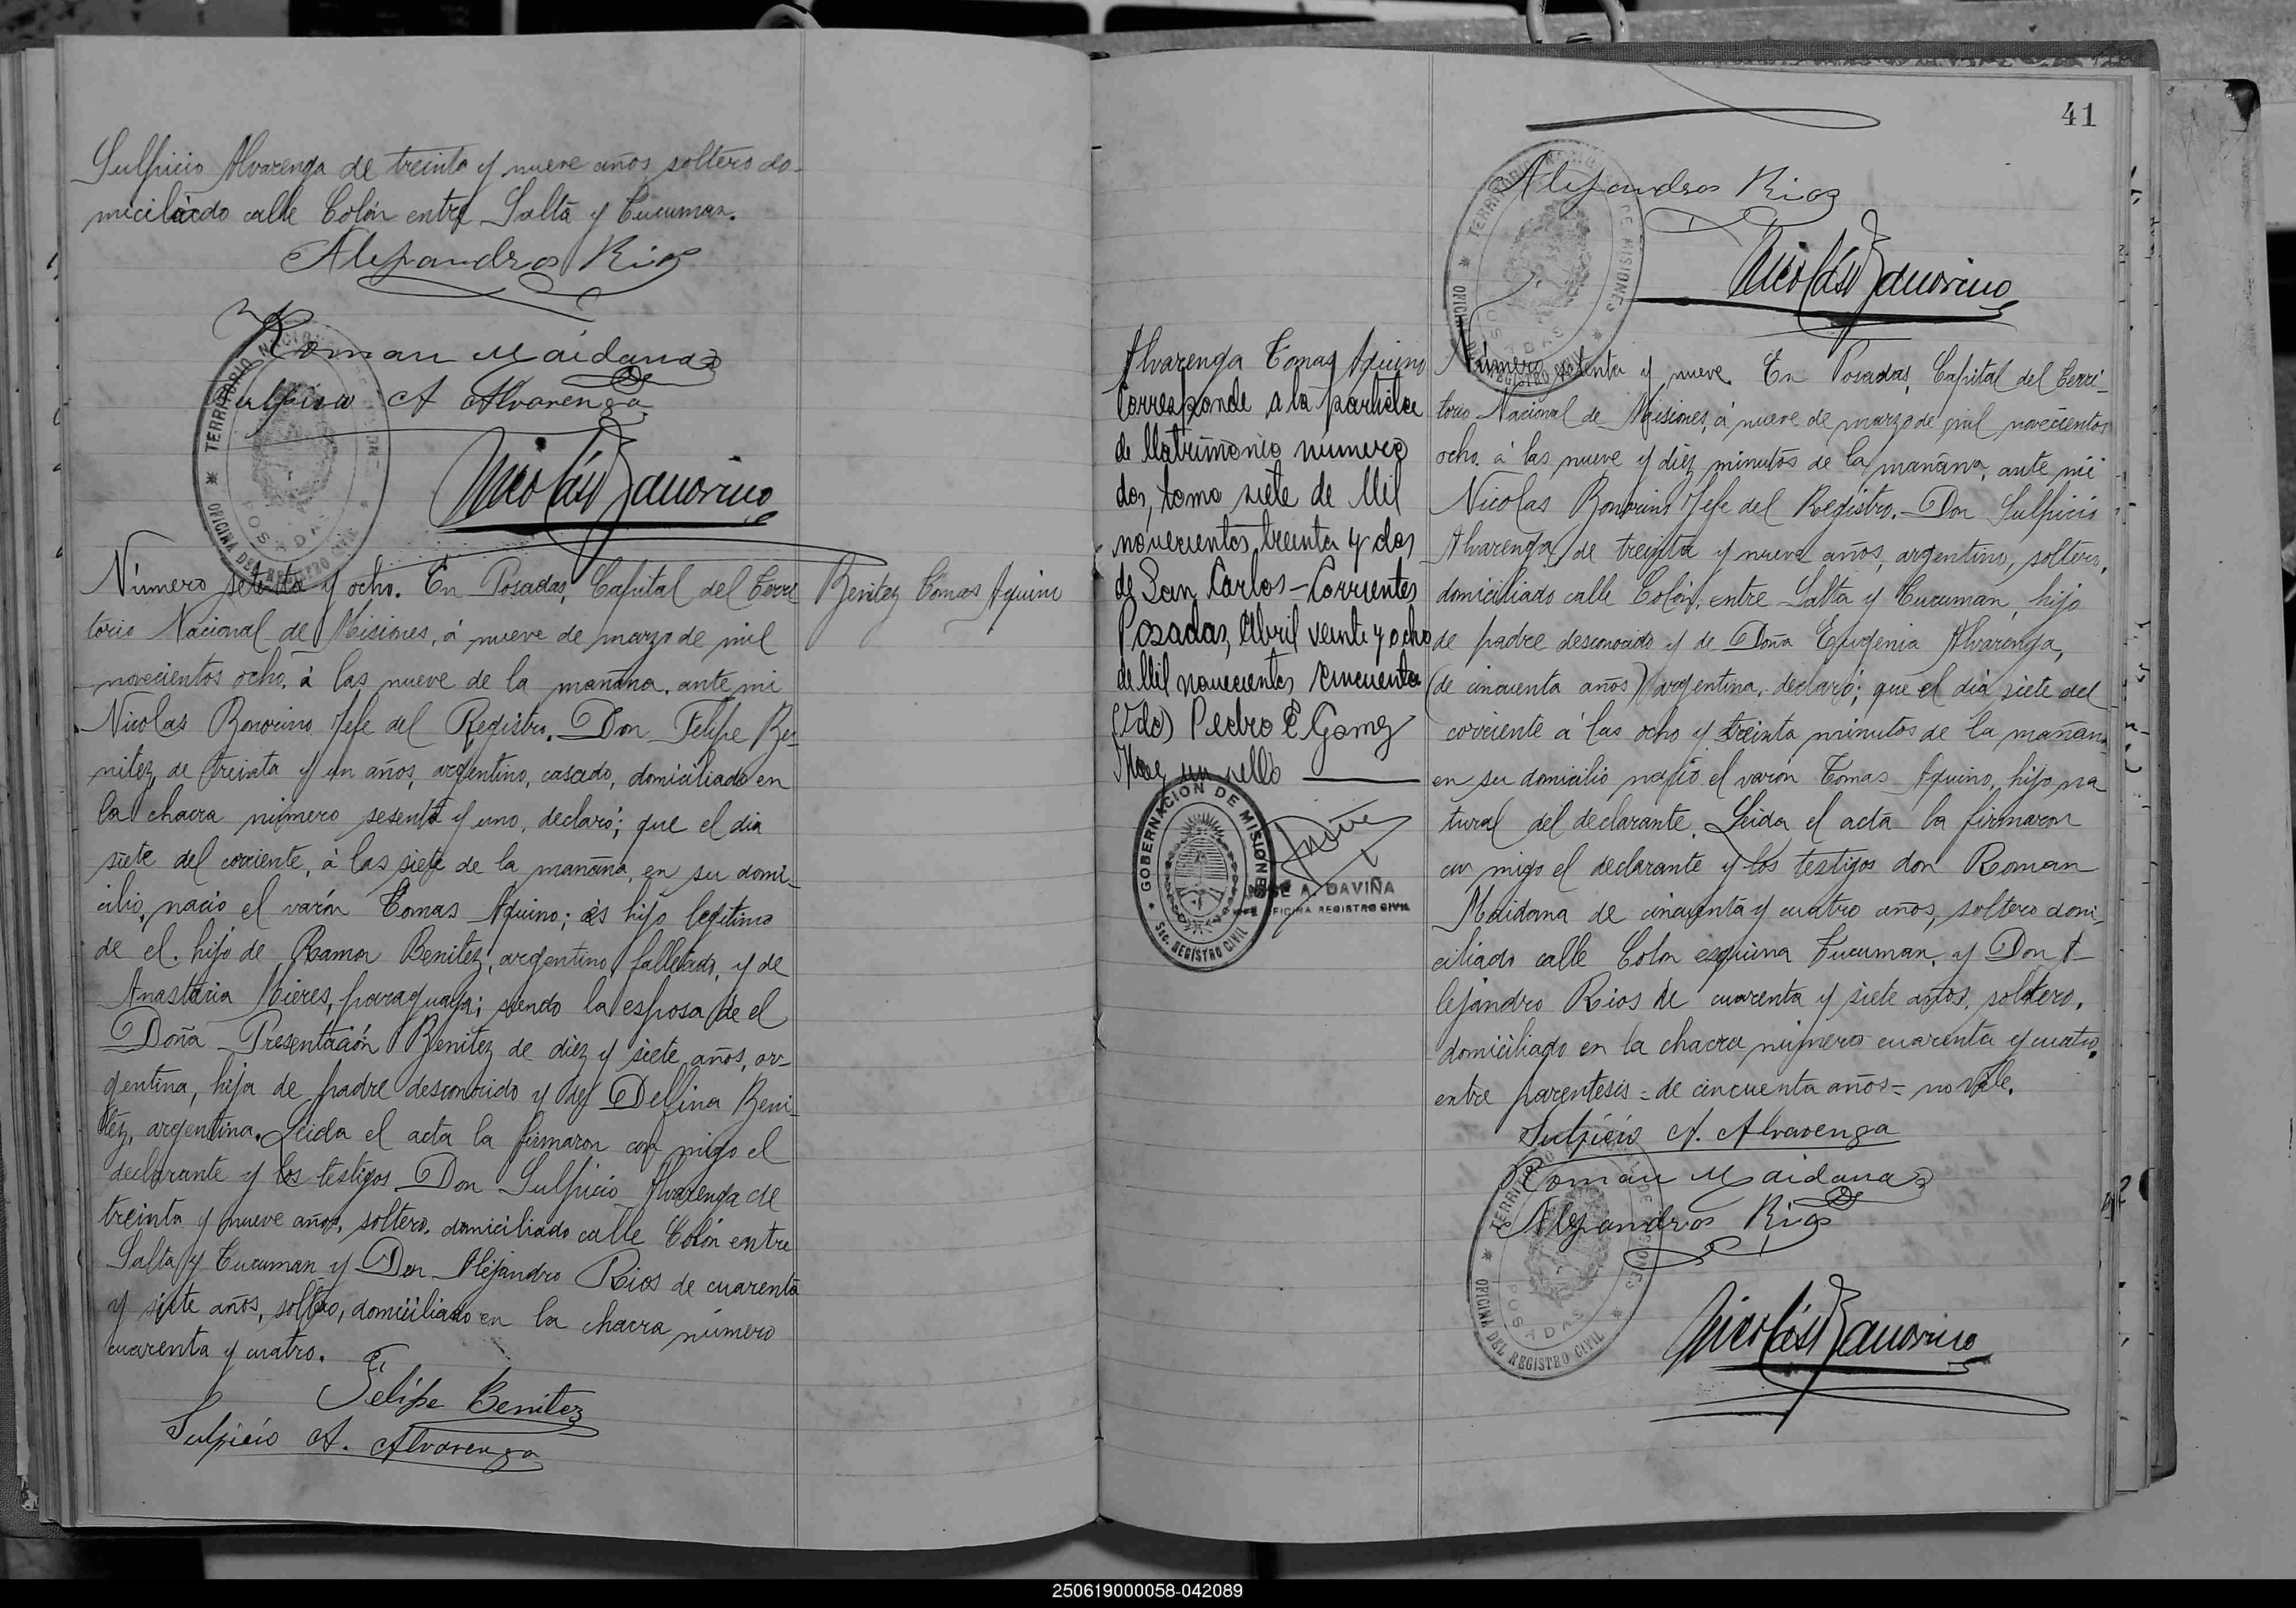 Sulpicio Alvarenga de treinta y nueve años soltero do-
miciliado calle Colón entre Salta y Tucuman.
Alejandros Rios
Roman Maidana
Sulpicio A Alvarenga
Nicolás Bonorino
TERRITORIO NACIONAL DE MISIONES
POSADAS
OFICINA DEL REGISTRO CIVIL
Número setenta y ocho. En Posadas, Capital del Terri
torio Nacional de Misiones, á nueve de marzo de mil
novecientos ocho. á las nueve de la mañana, ante mi
Nicolas Bonorino Jefe del Registro. Don Felipe Be-
nitez, de treinta y un años, argentino, casado, domiciliado en
la chacra número sesenta y uno, declaró; que el dia
siete del corriente, á las siete de la mañana, en su domi-
cilio, nació el varón Tomas Aquino; es hijo legitimo
de el. hijo de Ramon Benitez, argentino, fallecido, y de
Anastacia Mieres, paraguaya; siendo la esposa de el
Doña Presentación Benitez de diez y siete años, ar-
gentina, hija de padre desconocido y de Delfina Beni-
tez, argentina. Leida el acta la firmaron con migo el
declarante y los testigos Don Sulpicio Alvarenga de
treinta y nueve años, soltero, domiciliado calle Colón entre
Salta y Tucuman y Don Alejandro Rios de cuarenta
y siete años, soltero, domiciliado en la chacra número
cuarenta y cuatro.
Felipe Benitez
Sulpicio A. Alvarenga
Benitez Tomas Aquino
41
Alejandros Rios
Nicolás Bonorino
TERRITORIO NACIONAL DE MISIONES
POSADAS
OFICINA DEL REGISTRO CIVIL
Alvarenga Tomas Aquino
Corresponde a la partida
de Matrimonio número
dos, tomo siete de Mil
novecientos treinta y dos
de San Carlos-Corrientes
Posadas, Abril veinte y ocho
de Mil novecientos cincuenta
(Fdo) Pedro E Gomez
Hay un sello
GOBERNACION DE MISIONES
Sec. REGISTRO CIVIL
A. DAVIÑA
OFICINA REGISTRO CIVIL
Número setenta y nueve. En Posadas, Capital del Terri-
torio Nacional de Misiones, á nueve de marzo de mil novecientos
ocho. á las nueve y diez minutos de la mañana, ante mi
Nicolas Bonorino Jefe del Registro. Don Sulpicio
Alvarenga, de treinta y nueve años, argentino, soltero,
domiciliado calle Colón, entre Salta y Tucuman, hijo
de padre desconocido y de Doña Eugenia Alvarenga,
(de cincuenta años) argentina, declaró; que el dia siete del
corriente á las ocho y treinta minutos de la mañana
en su domicilio nació el varón Tomas Aquino, hijo na
tural del declarante. Leida el acta la firmaron
con migo el declarante y los testigos don Roman
Maidana de cincuenta y cuatro años, soltero domi-
ciliado calle Colon esquina Tucuman, y Don A-
lejandro Rios de cuarenta y siete años, soltero,
domiciliado en la chacra número cuarenta y cuatro,
entre parentesis = de cincuenta años = no vale.
Sulpicio A. Alvarenga
Roman Maidana
Alejandros Rios
Nicolás Bonorino
TERRITORIO NACIONAL DE MISIONES
POSADAS
OFICINA DEL REGISTRO CIVIL
250619000058-042089